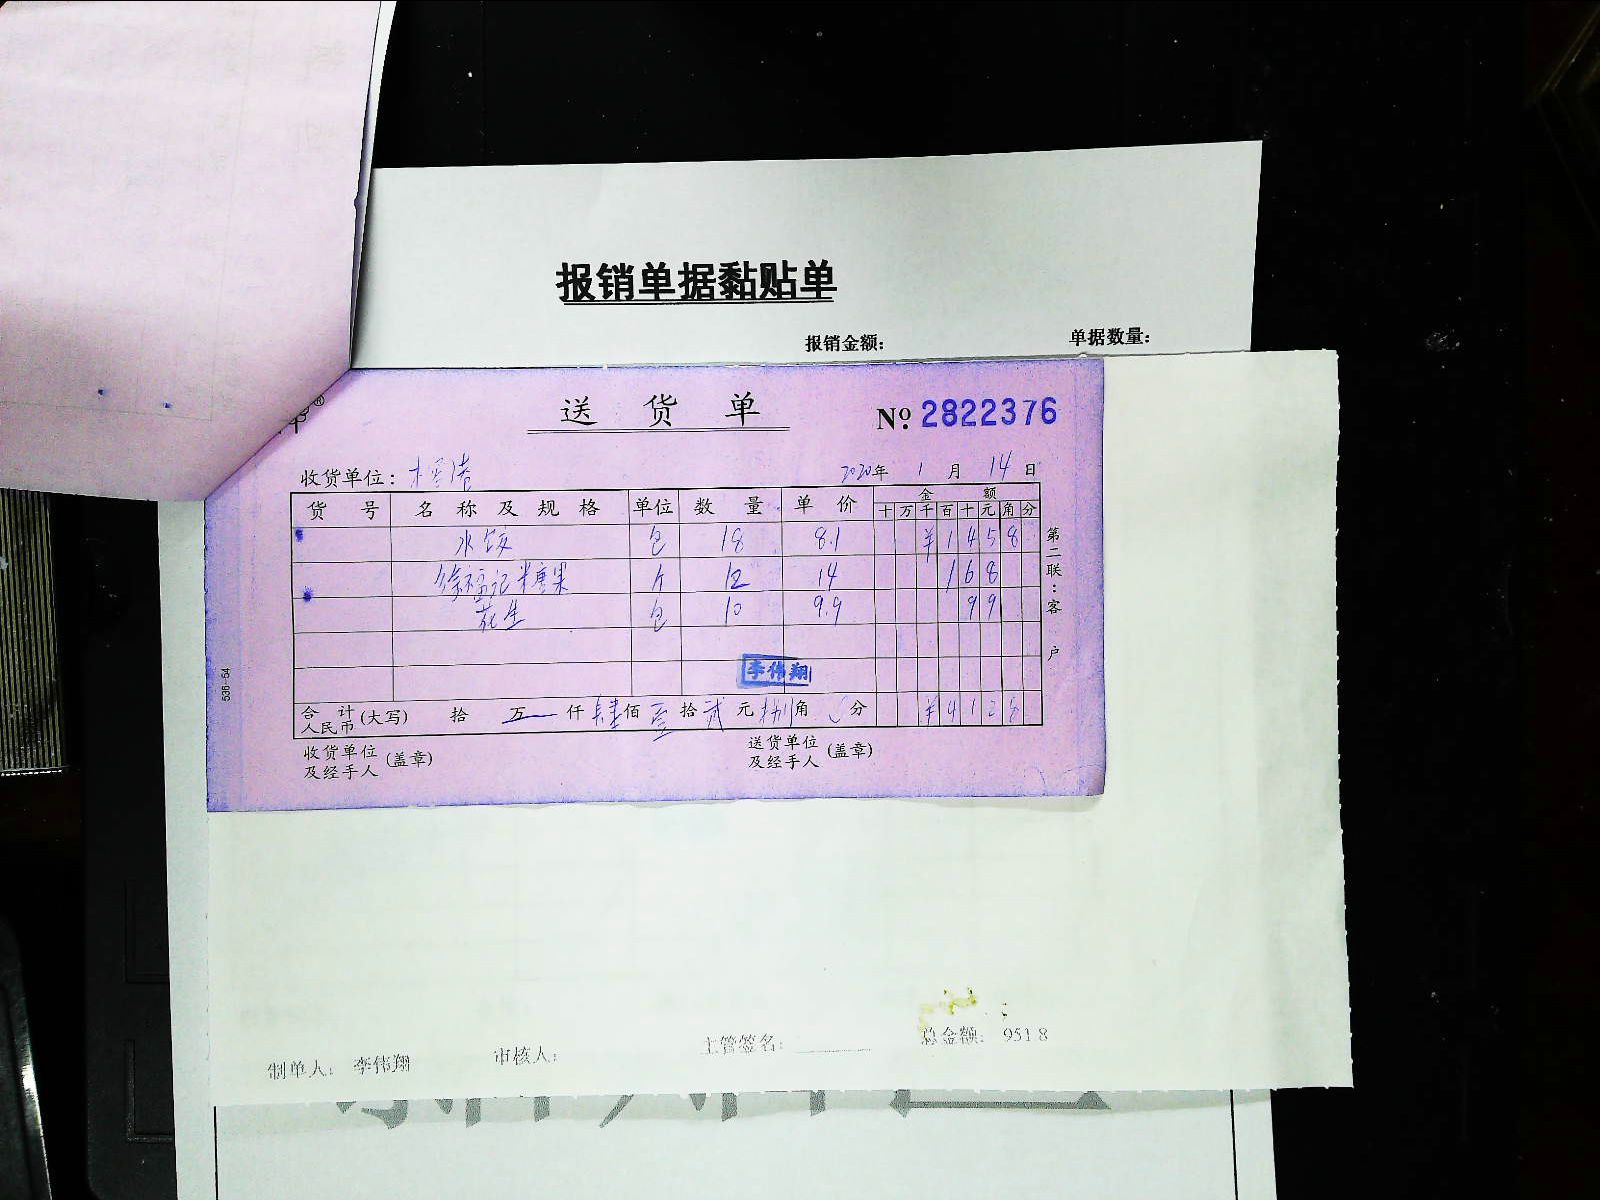 报销单据黏贴单
报销金额: 单据数量:
送货单
№ 2822376
收货单位: 2020年 1月 14日
货号 名称及规格 单位 数量 单价 金额
十万千百十元角分
水饺 包 18 8.1 ¥1458
徐福记糖果 斤 12 14 168
花生 包 10 9.9 99
李伟翔
合计人民币(大写) 拾 万 仟 肆佰 壹拾 贰元 捌角 分 ¥4128
收货单位及经手人(盖章) 送货单位及经手人(盖章)
第二联:客户
536-54
制单人: 李伟翔 审核人: 主管签名: 总金额: 951.8